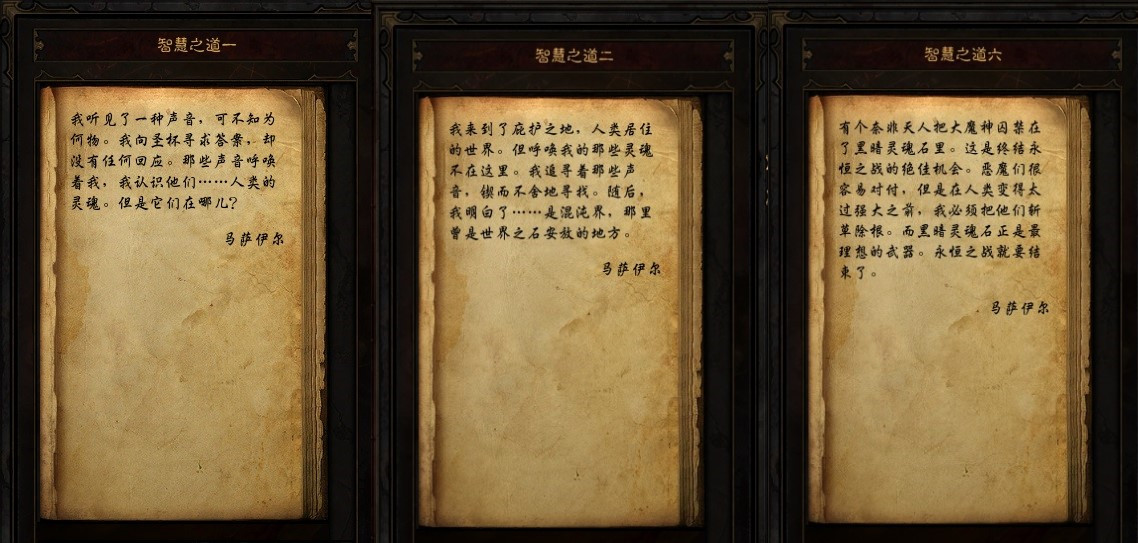 智慧之道一
我听见了一种声音，可不知为
何物。我向圣杯寻求答案，却
没有任何回应。那些声音呼唤
着我，我认识他们……人类的
灵魂。但是它们在哪儿？
马萨伊尔
智慧之道二
我来到了庇护之地，人类居住
的世界。但呼唤我的那些灵魂
不在这里。我追寻着那些声
音，锲而不舍地寻找。随后，
我明白了……是混沌界，那里
曾是世界之石安放的地方。
马萨伊尔
智慧之道六
有个奈非天人把大魔神囚禁在
了黑暗灵魂石里。这是终结永
恒之战的绝佳机会。恶魔们很
容易对付，但是在人类变得太
过强大之前，我必须把他们斩
草除根。而黑暗灵魂石正是最
理想的武器。永恒之战就要结
束了。
马萨伊尔